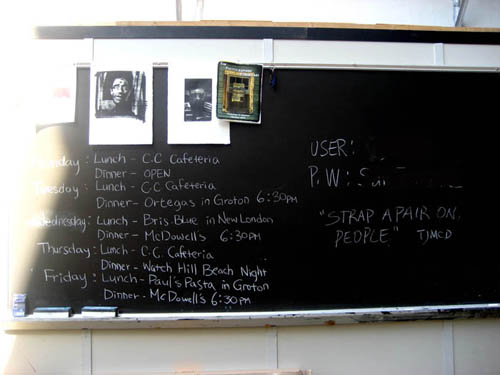 Monday: Lunch - C.C Cafeteria
Dinner - OPEN
Tuesday: Lunch - C.C Cafeteria
Dinner - Ortegas in Groton 6:30PM
Wednesday: Lunch - Bris Blue in New London
Dinner - McDowell's 6:30PM
Thursday: Lunch - C.C. Cafeteria
Dinner - Watch Hill Beach Night
Friday: Lunch - Paul's Pasta in Groton
Dinner - McDowell's 6:30PM
USER:
P.W:
"STRAP A PAIR ON,
PEOPLE" TJMCD